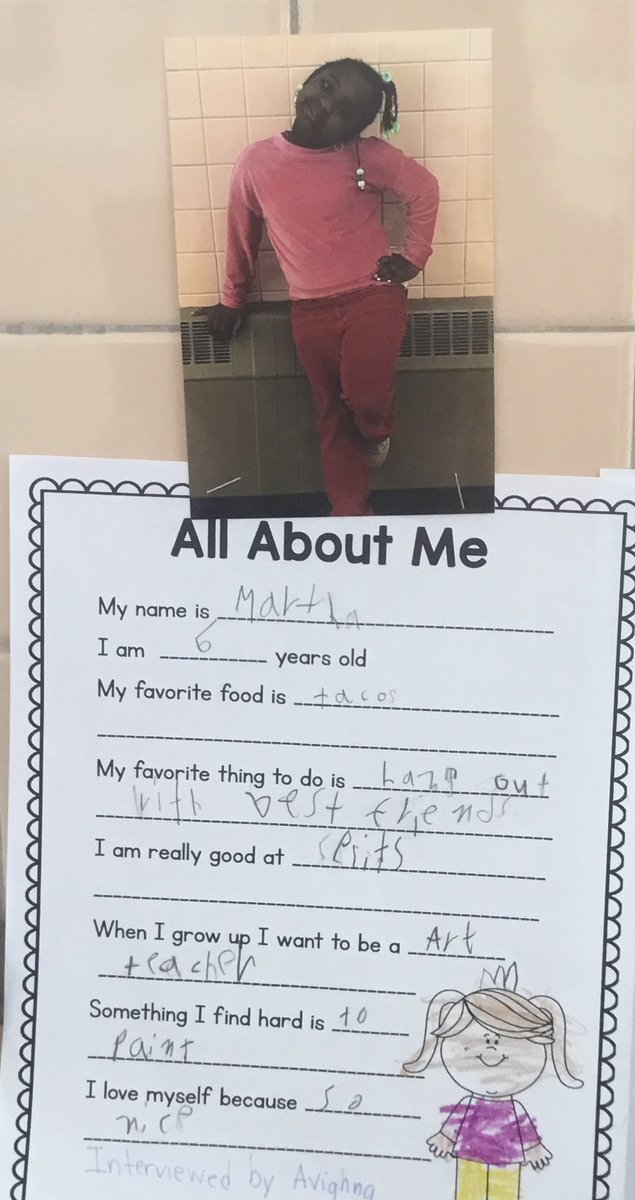 All About Me
My name is Martha
I am 6 years old
My favorite food is tacos
My favorite thing to do is hang out
with best friends
I am really good at splits
When I grow up I want to be a Art
teacher
Something I find hard is to
paint
I love myself because so
nice
Interviewed by Avighna